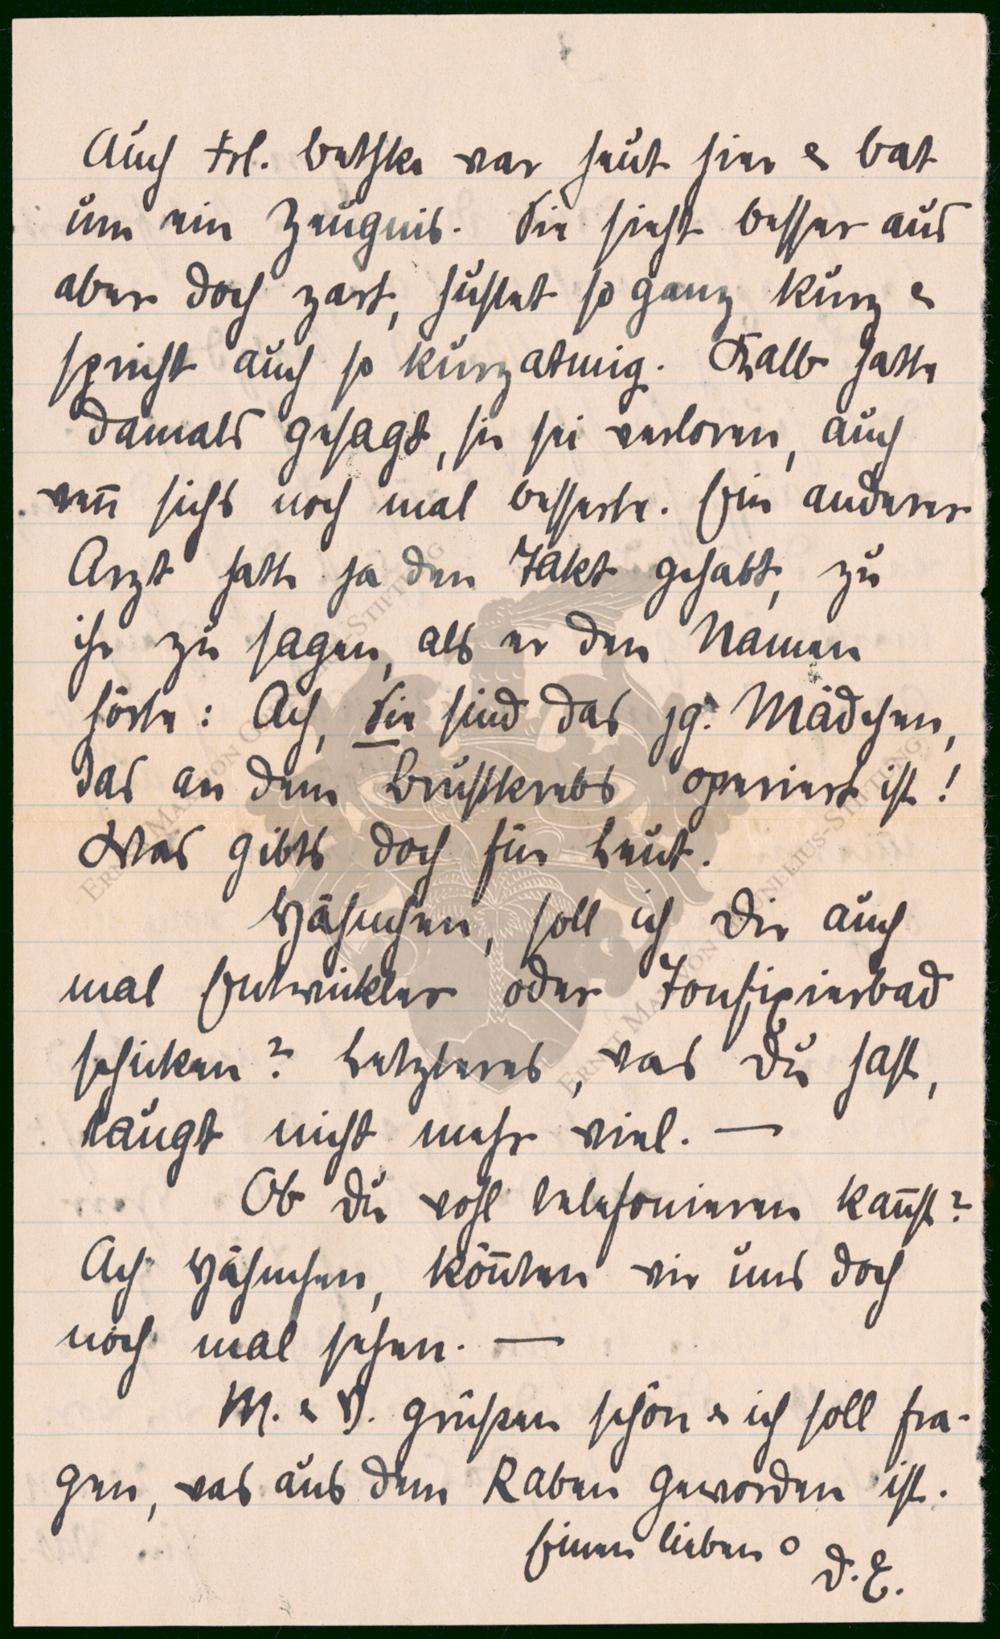 Auch Frl. Bethke war heut hier & bat
um ein Zeugnis. Sie sieht besser aus
aber doch zart, hustet so ganz kurz &
spricht auch so kurzatmig. Kalb hatte
damals gesagt, sie sei verloren, auch
wen̄ sichs noch mal besserte. Ein anderer
Arzt hatte ja den Takt gehabt, zu
ihr zu sagen, als er den Namen
hörte: Ach, Sie sind das jg. Mädchen,
das an dem Brustkrebs operiert ist!
Was gibts doch für Leut.
soll ich Dir auch
mal Entwickler oder Tonfixierbad
schicken? Letzteres, was Du hast,
taugt nicht mehr viel. —
Ob Du wohl telefonieren kan̄st?
Ach kön̄ten wir uns doch
noch mal sehen. —
M. & V. grüßen schön & ich soll fra-
gen, was aus dem Raben geworden ist.
Einen lieben o
D. E.